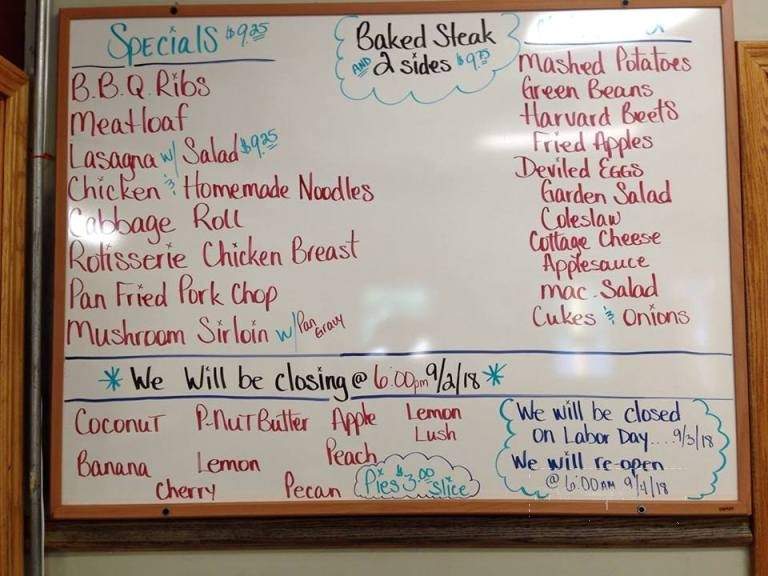 Specials $9.25
B.B.Q. Ribs
Meatloaf
Lasagna w/ Salad $9.25
Chicken & Homemade Noodles
Cabbage Roll
Rotisserie Chicken Breast
Pan Fried Pork Chop
Mushroom Sirloin w/ Pan Gravy
Baked Steak
AND 2 sides $9.75
Mashed Potatoes
Green Beans
Harvard Beets
Fried Apples
Deviled Eggs
Garden Salad
Coleslaw
Cottage Cheese
Applesauce
Mac. Salad
Cukes & Onions
* We Will be closing @ 6:00pm 9/2/18 *
Coconut P-Nut Butter Apple Lemon Lush
Banana Lemon Peach
Cherry Pecan
Pies $3.00 Slice
We will be closed
on Labor Day....9/3/18
We will re-open
@ 6:00AM 9/4/18